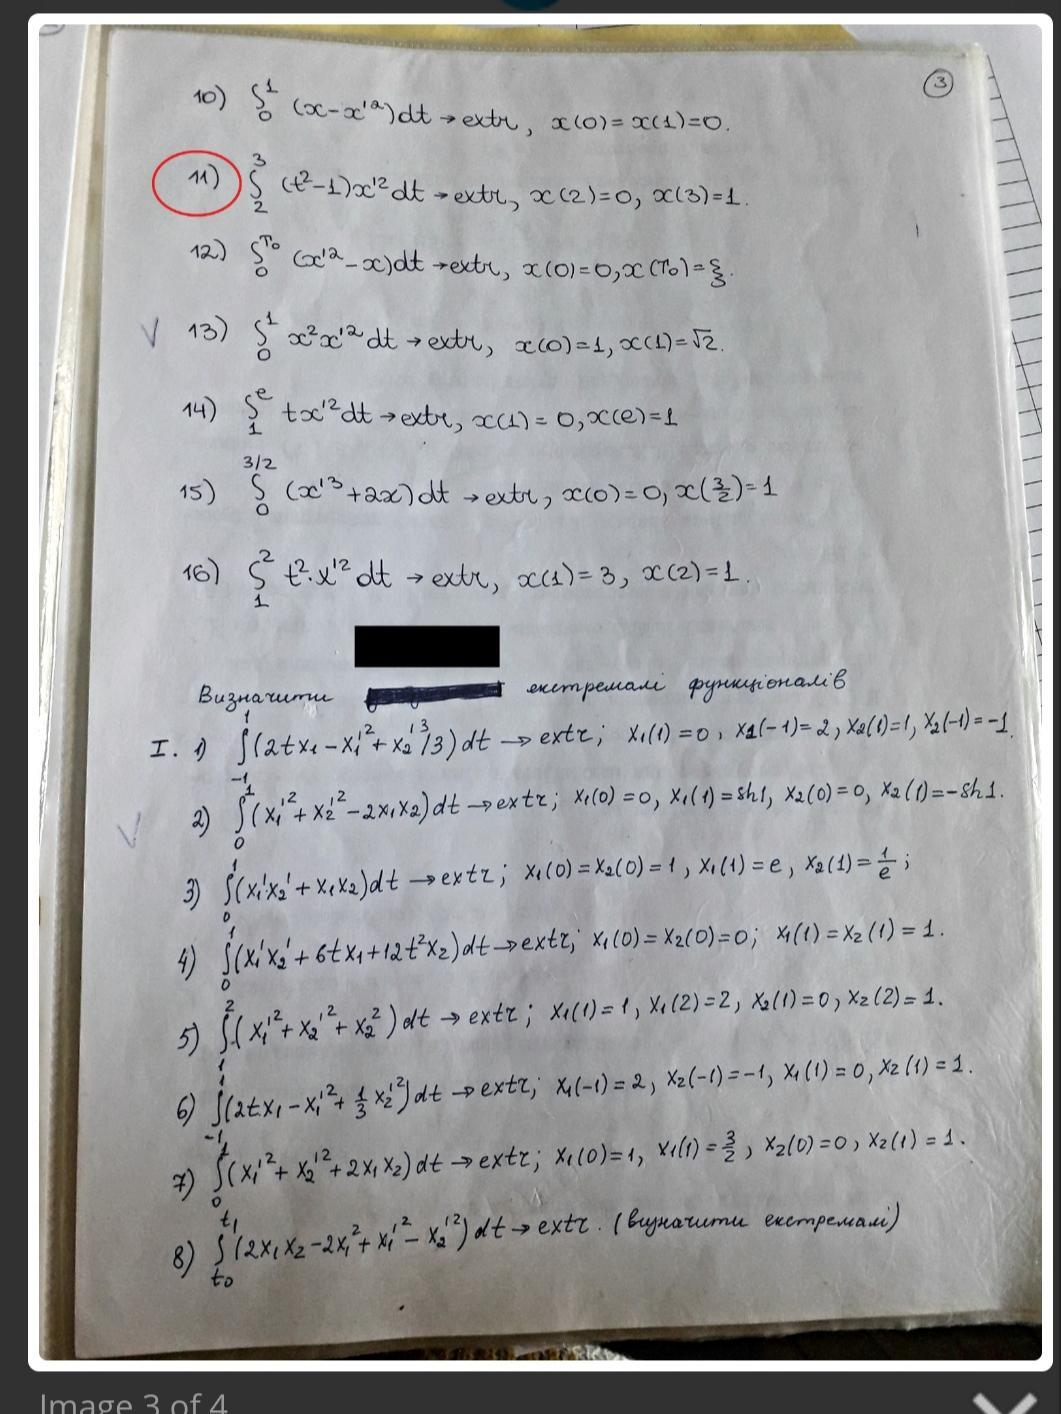 3
10) ∫₀¹ (x-x'²)dt → extr, x(0)=x(1)=0.
11) ∫₂³ (t²-1)x'²dt → extr, x(2)=0, x(3)=1.
12) ∫₀^T₀ (x'²-x)dt → extr, x(0)=0, x(T₀)=ξ.
13) ∫₀¹ x²x'²dt → extr, x(0)=1, x(1)=√2.
14) ∫₁^e tx'²dt → extr, x(1)=0, x(e)=1
15) ∫₀^3/2 (x'³+2x)dt → extr, x(0)=0, x(3/2)=1
16) ∫₁² t²·x'²dt → extr, x(1)=3, x(2)=1.
Визначити екстремалі функціоналів
I. 1) ∫₋₁¹ (2tx₁-x₁'²+x₂'³/3)dt → extr; x₁(1)=0, x₁(-1)=2, x₂(1)=1, x₂(-1)=-1.
2) ∫₀¹ (x₁'²+x₂'²-2x₁x₂)dt → extr; x₁(0)=0, x₁(1)=sh1, x₂(0)=0, x₂(1)=-sh1.
3) ∫₀¹ (x₁'x₂'+x₁x₂)dt → extr; x₁(0)=x₂(0)=1, x₁(1)=e, x₂(1)=1/e;
4) ∫₀¹ (x₁'x₂'+6tx₁+12t²x₂)dt → extr; x₁(0)=x₂(0)=0; x₁(1)=x₂(1)=1.
5) ∫₁² (x₁'²+x₂'²+x₂²)dt → extr; x₁(1)=1, x₁(2)=2, x₂(1)=0, x₂(2)=1.
6) ∫₋₁¹ (2tx₁-x₁'²+1/3 x₂'²)dt → extr; x₁(-1)=2, x₂(-1)=-1, x₁(1)=0, x₂(1)=1.
7) ∫₀¹ (x₁'²+x₂'²+2x₁x₂)dt → extr; x₁(0)=1, x₁(1)=3/2, x₂(0)=0, x₂(1)=1.
8) ∫t₀^t₁ (2x₁x₂-2x₁²+x₁'²-x₂'²)dt → extr. (визначити екстремалі)
Image 3 of 4